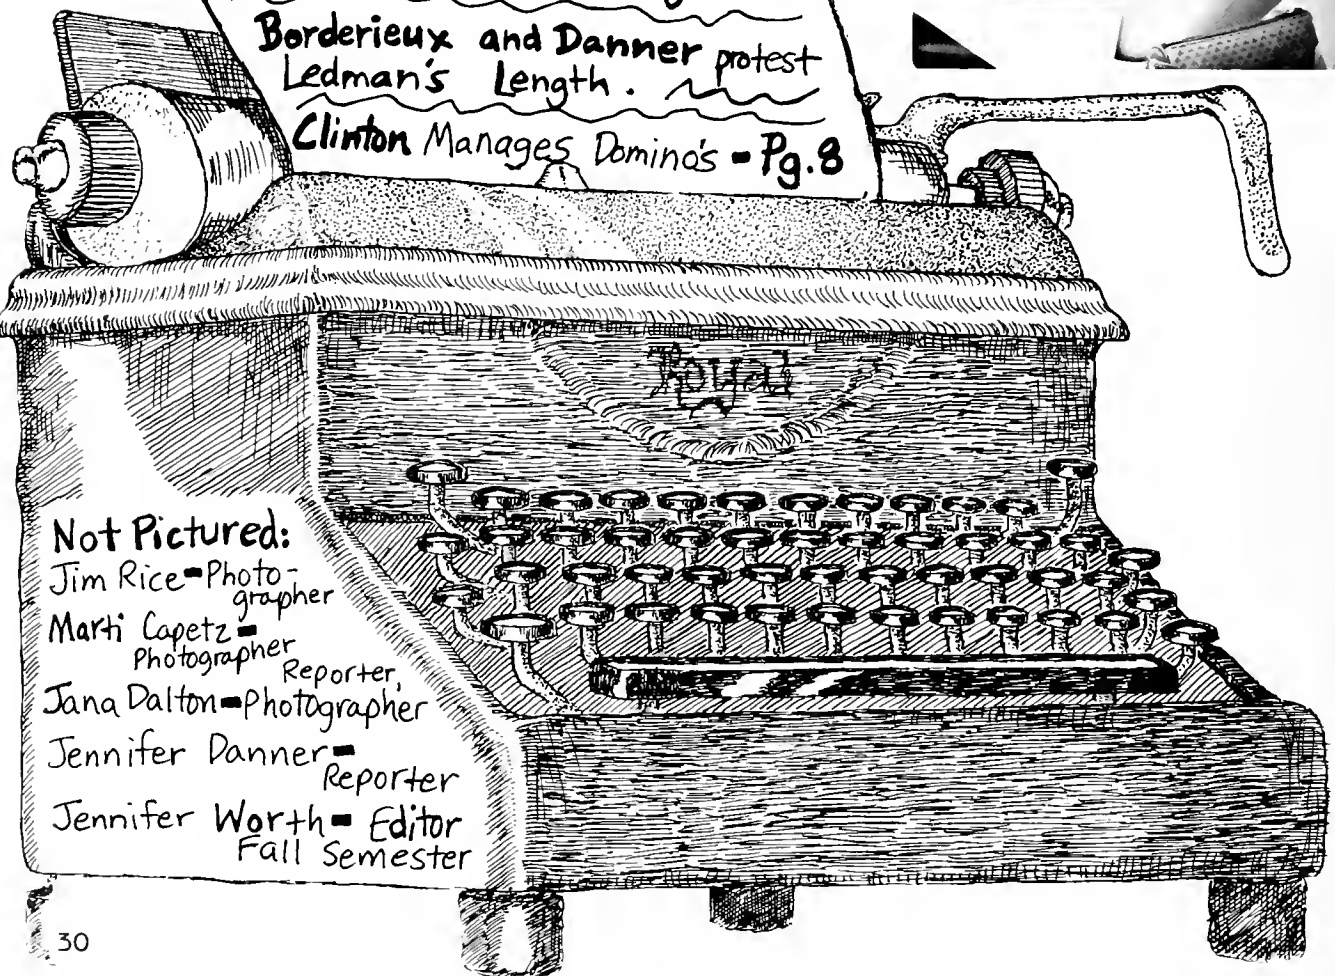 Borderieux and Danner protest
Ledman's Length.
Clinton Manages Domino's - Pg. 8
Royal
Not Pictured:
Jim Rice-Photo-
grapher
Marti Capetz-
Photographer
Reporter,
Jana Dalton-Photographer
Jennifer Danner-
Reporter
Jennifer Worth- Editor
Fall Semester
30